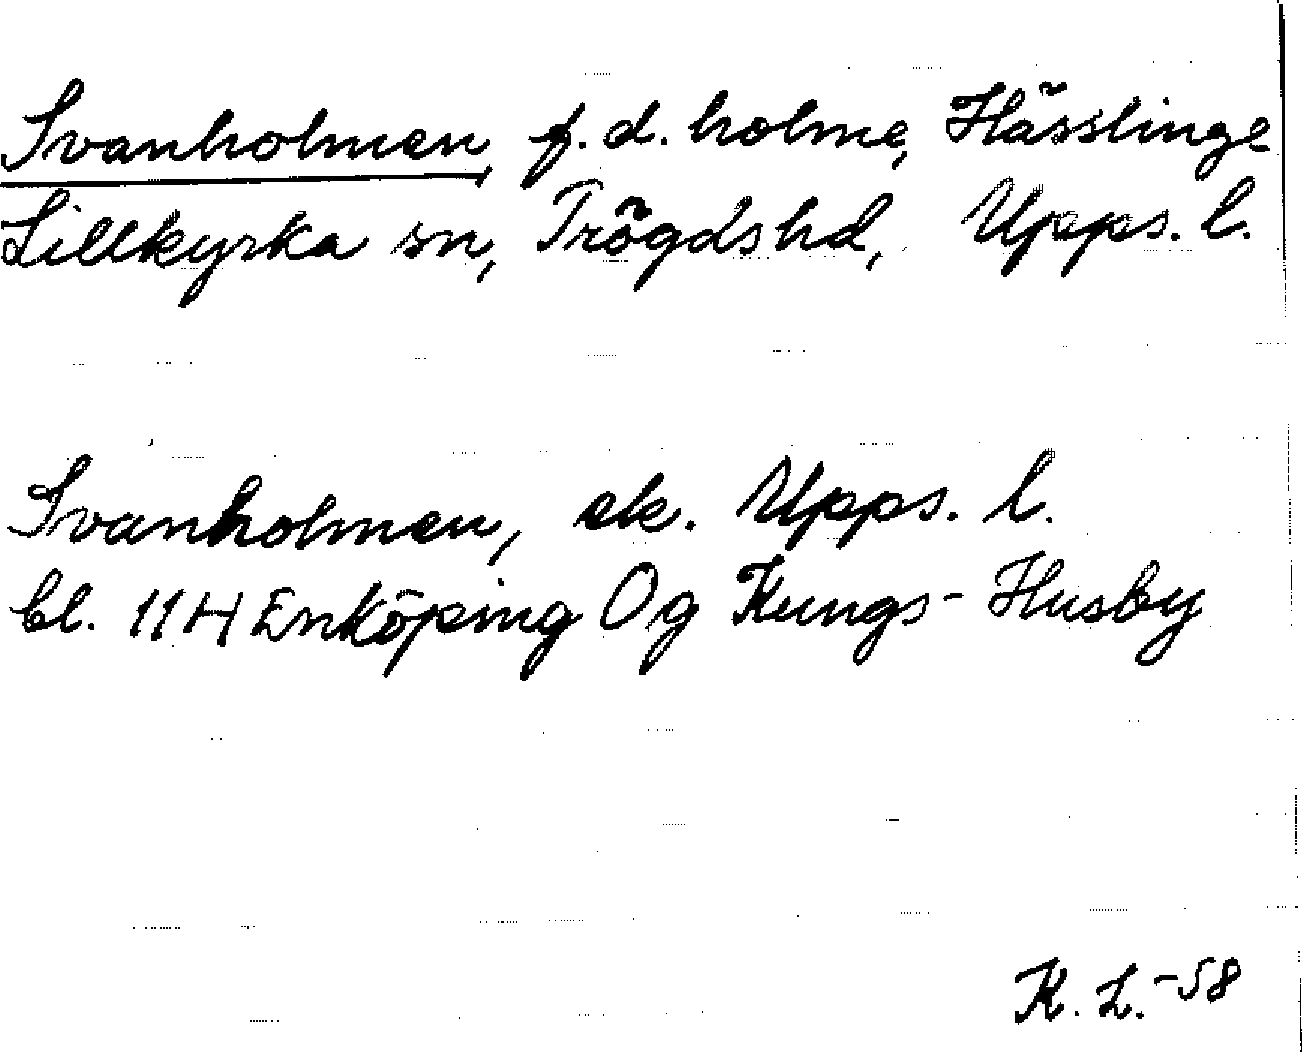 Svanholmen, f.d. holme, Hässlinge
Lillkyrka sn, Trögds hd, Upps. l.
Svanholmen, ek. Upps. l.
bl. 11H Enköping Og Kungs-Husby
K. L. -58